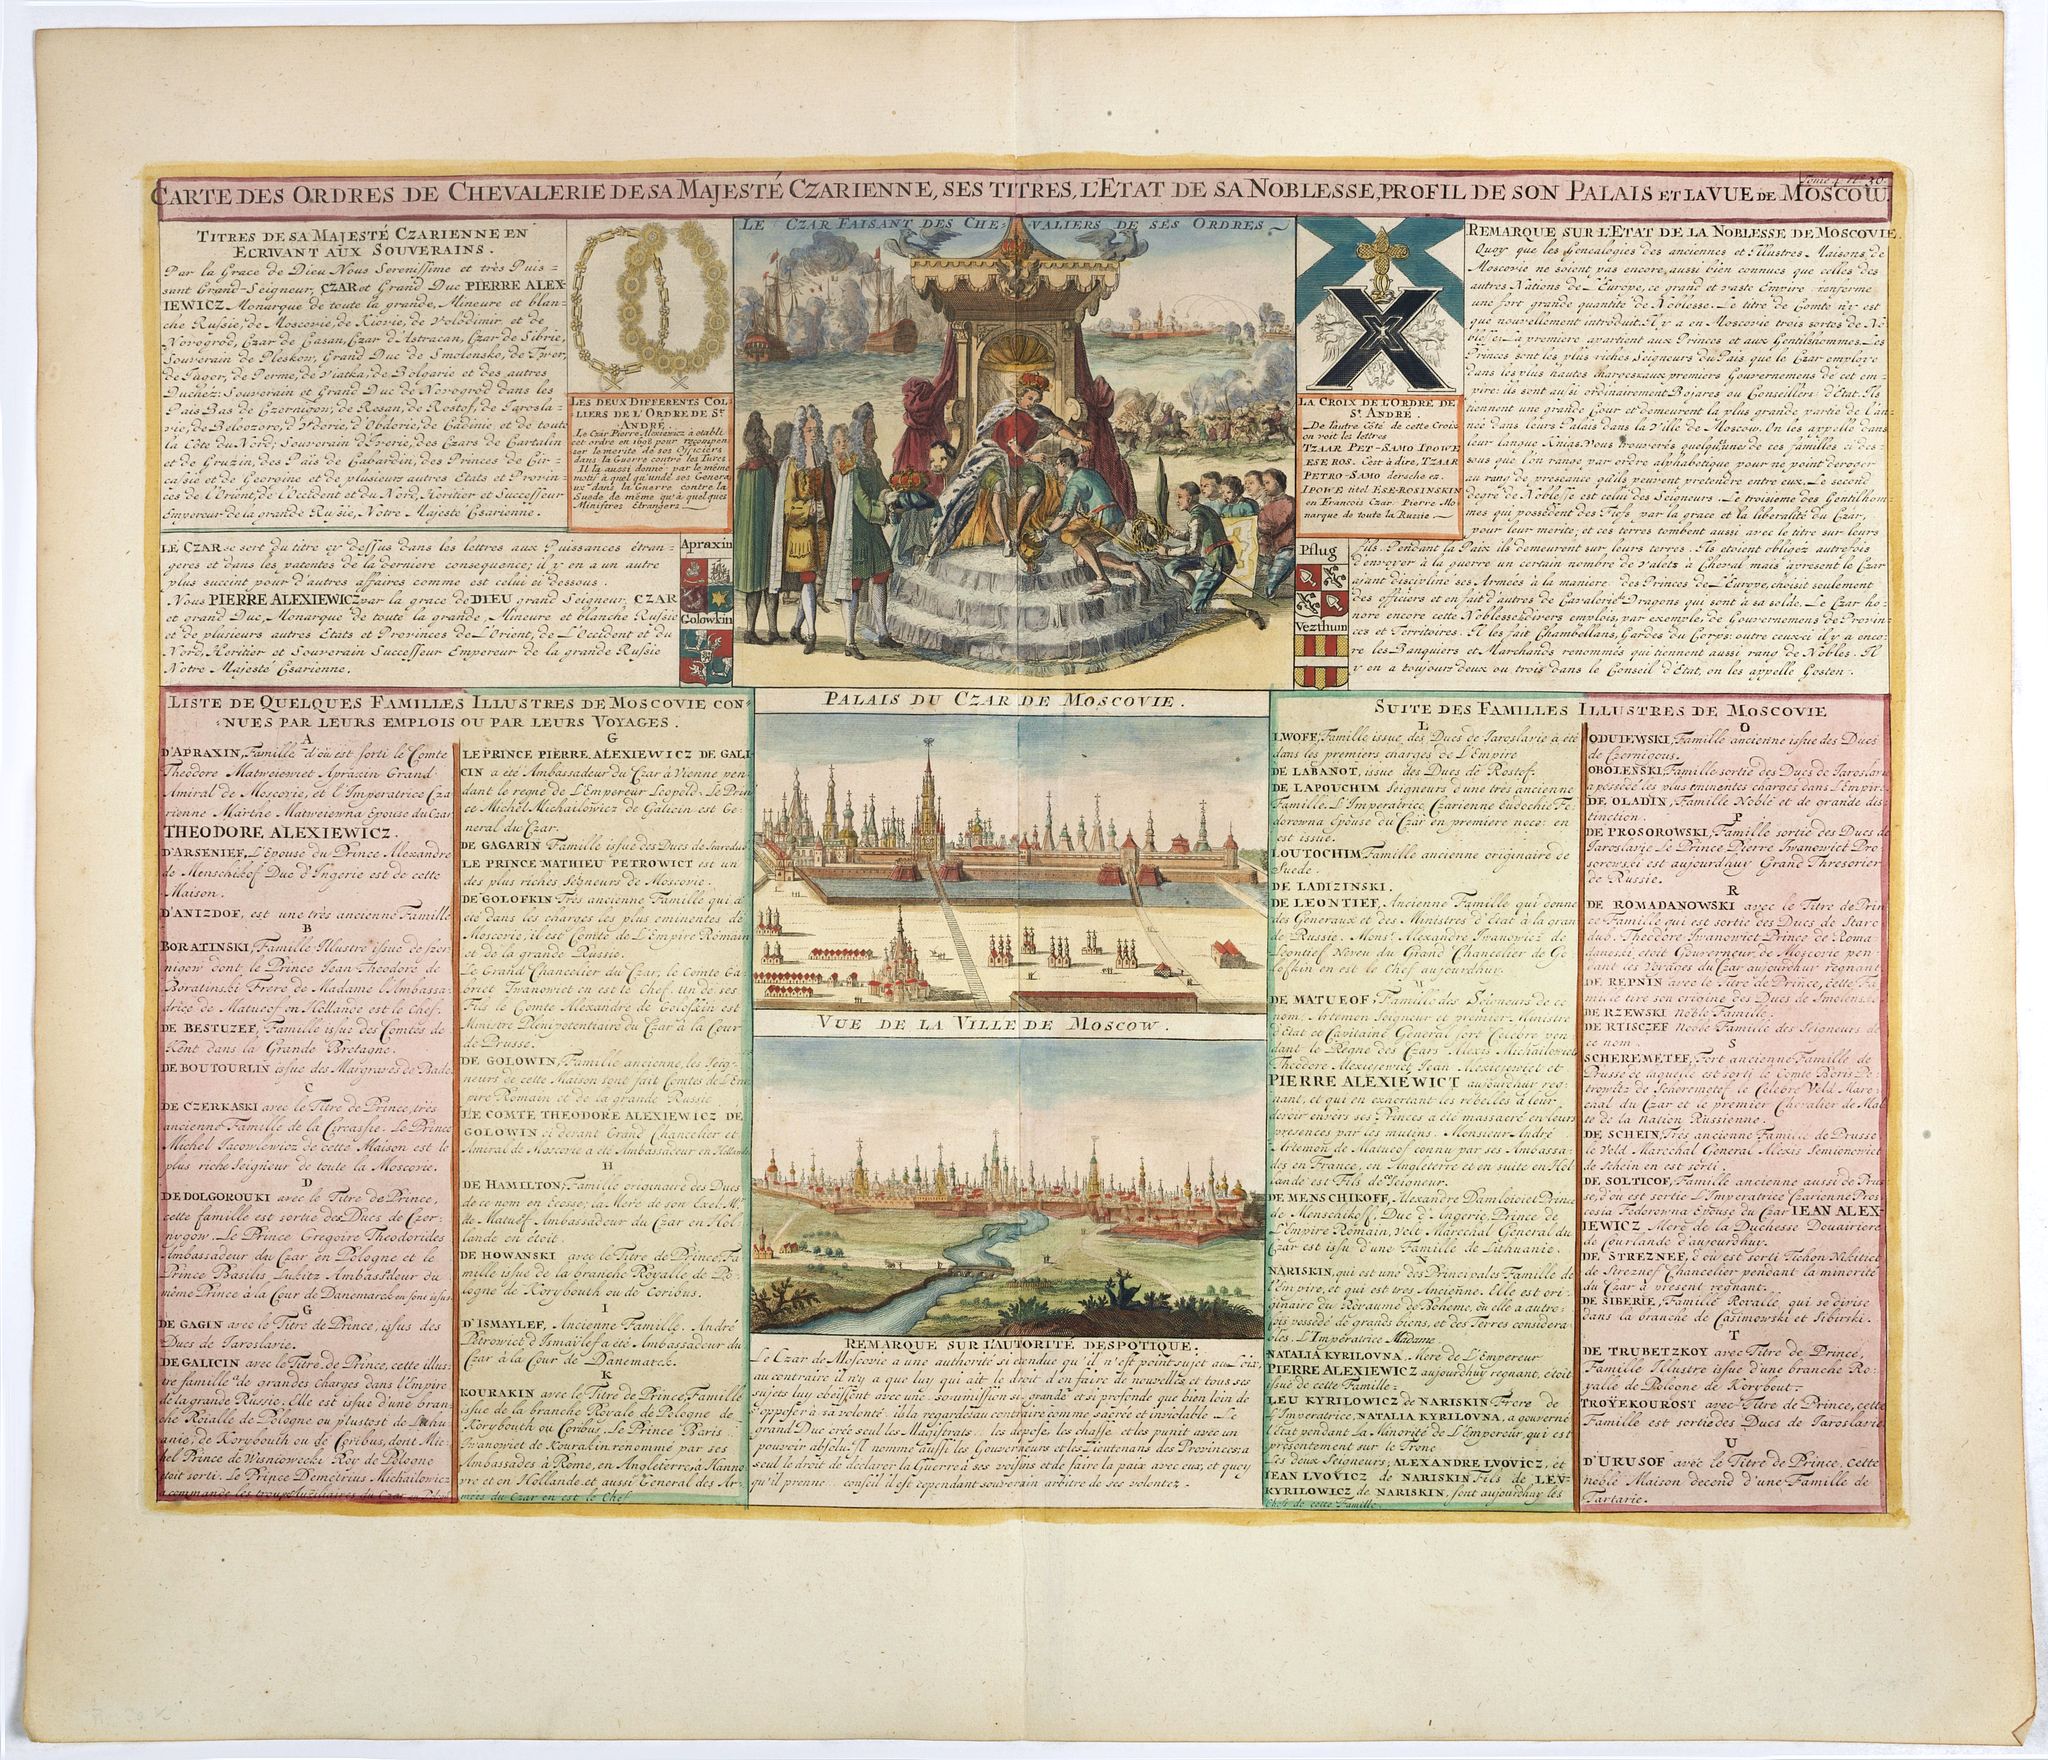 CARTE DES ORDRES DE CHEVALERIE DE SA MAJESTÉ CZARIENNE, SES TITRES, L'ETAT DE SA NOBLESSE, PROFIL DE SON PALAIS ET LA VUE DE MOSCOW.
Tome 4 N.º 30.
TITRES DE SA MAJESTÉ CZARIENNE EN
ECRIVANT AUX SOUVERAINS.
Par la Grace de Dieu Nous Serenissime et très Puis=
sant Grand-Seigneur, CZAR et Grand Duc PIERRE ALEX-
IEWICZ, Monarque de toute la grande, Mineure et blan-
che Russie, de Moscovie, de Kiovie, de Volodimir et de
Novogrod, Czar de Casan, Czar d'Astracan, Czar de Sibrie,
Souverain de Pleskow, Grand Duc de Smolensko, de Twer,
de Jugor, de Perme, de Viatka, de Bolgarie et des autres
Duchéz: Souverain et Grand Duc de Novogrod dans les
Pais Bas de Czernigow, de Resan, de Rostof, de Jarosla-
vie, de Beloozoro, d'Vdorie, d'Obdorie, de Cadinie et de toute
la Côte du Nord; Souverain d'Iverie, des Czars de Cartalin
et de Gruzin, des Païs de Cabardin, des Princes de Cir-
casie et de Georgine et de plusieurs autres Etats et Provin-
ces de l'Orient, de l'Occident et du Nord, Heritier et Successeur
Empereur de la grande Russie, Notre Majesté Csarienne.
LE CZAR se sert du titre cy dessus dans les lettres aux Puissances étran-
geres et dans les patentes de la derniere consequence; il y en a un autre
plus succint pour d'autres affaires comme est celui ci dessous.
Nous PIERRE ALEXIEWICZ par la grace de DIEU grand Seigneur, CZAR
et grand Duc, Monarque de toute la grande, Mineure et blanche Russie
et de plusieurs autres Etats et Provinces de L'Orient, de L'Occident et du
Nord, Heritier et Souverain Successeur Empereur de la grande Russie
Notre Majesté Csarienne.
LES DEUX DIFFERENTS COL-
LIERS DE L'ORDRE DE S.T
ANDRÉ.
Le Czar Pierre Alexiewicz a etabli
cet ordre en 1698 pour recompen
ser le merite de ses Officiers
dans la Guerre contre les Turcs
Il la aussi donné par le même
motif a quelqu'unde ses Genera
ux dans la Guerre contre la
Suede de même qu'a quelques
Ministres Etrangers.
Apraxin
Golowkin
LE CZAR FAISANT DES CHEVALIERS DE SES ORDRES
LA CROIX DE L'ORDRE DE
S.T ANDRÉ.
De l'autre Côté de cette Croix
on voit les lettres
TZAAR PET-SAMO IPOWE
ESE ROS. C'est à dire, TZAAR
PETRO-SAMO dersche ez.
IPOWE titel ESE-ROSINSKIN
en Francois Czar Pierre Mo
narque de toute la Russie
Pflug
Vezthum
REMARQUE SUR L'ETAT DE LA NOBLESSE DE MOSCOVIE.
Quoy que les Genealogies des anciennes et Illustres Maisons de
Moscovie ne soient pas encore aussi bien connues que celles des
autres Nations de l'Europe, ce grand et vaste Empire renferme
une fort grande quantité de Noblesse. Le titre de Comte n'y est
que nouvellement introduit. Il y a en Moscovie trois sortes de No
blesse. La premiere apartient aux Princes et aux Gentilshommes. Les
Princes sont les plus riches Seigneurs du Pais que le Czar employe
dans les plus hautes charges aux premiers Gouvernemens de cet em-
pire: ils sont aussi ordinairement Bojares ou Conseillers d'Etat. Ils
tiennent une grande Cour et demeurent la plus grande partie de l'an-
née dans leurs Palais dans la Ville de Moscow. On les appelle dans
leur langue Knias. Vous trouverés quelqu'unes de ces familles ci des-
sous que l'on range par ordre alphabetique pour ne point deroger
au rang de presceance qu'ils peuvent pretendre entre eux. Le second
degré de Noblesse est celui des Seigneurs. Le troisieme des Gentilhom-
mes qui possedent des Fiefs par la grace et la liberalité du Czar,
pour leur merite, et ces terres tombent aussi avec le titre sur leurs
fils. Pendant la Paix ils demeurent sur leurs terres. Ils etoient obligez autrefois
d'envoyer à la guerre un certain nombre de valetz à Cheval mais apresent le Czar
ajant discipliné ses Armées à la maniere des Princes de L'Europe, choisit seulement
des officiers et en fait d'autres de Cavalerie de Dragons qui sont à sa solde. Le Czar ho-
nore encore cette Noblesse divers emplois, par exemple, de Gouvernemens de Provin-
ces et Territoires. Il les fait Chambellans, Gardes du Corps: outre ceux-ci il y a enco-
re les Banquiers et Marchands renommés qui tiennent aussi rang de Nobles. Il
y en a toujours deux ou trois dans le Conseil d'Etat, on les appelle Gosten.
LISTE DE QUELQUES FAMILLES ILLUSTRES DE MOSCOVIE CON-
NUES PAR LEURS EMPLOIS OU PAR LEURS VOYAGES.
A
D'APRAXIN, Famille d'où est sorti le Comte
Theodore Matweiewiet Apraxin Grand
Amiral de Moscovie, et l'Imperatrice Cza
rienne Marthe Matweiewna Epouse du Czar
THEODORE ALEXIEWICZ.
D'ARSENIEF, L'Epouse du Prince Alexandre
de Menschikof Duc d'Ingerie est de cette
Maison.
D'ANIZDOF, est une très ancienne Famille
B
BORATINSKI, Famille Illustre issue de Czer
nigow dont le Prince Jean Theodore de
Boratinski Frere de Madame l'Ambassa
drice de Matueof en Hollande est le Chef.
DE BESTUZEF, Famille issue des Comtes de
Kent dans la Grande Bretagne.
DE BOUTOURLIN issue des Margraves de Bade
C
DE CZERKASKI avec le Titre de Prince, très
ancienne Famille de la Circassie. Le Prince
Michel Jacowlewicz de cette Maison est le
plus riche Seigneur de toute la Moscovie.
D
DE DOLGOROUKI avec le Titre de Prince,
cette famille est sortie des Ducs de Czer-
nygow. Le Prince Gregoire Theodorides
Ambassadeur du Czar en Pologne et le
Prince Basilis Lukitz Ambassadeur du
même Prince à la Cour de Danemarck en sont issus
G
DE GAGIN avec le Titre de Prince, issus des
Ducs de Jaroslavie.
DE GALICIN avec le Titre de Prince, cette illus-
tre famille a de grandes charges dans l'Empire
de la grande Russie. Elle est issue d'une bran-
che Roialle de Pologne ou plustost de Lithu
anie, de Korybouth ou de Coribus, dont Mic-
hel Prince de Wisniowecki Roy de Pologne
etoit sorti. Le Prince Demetrius Michailowicz
a commande les troupes Auxiliaires du Czar en Pologne
G
LE PRINCE PIERRE ALEXIEWICZ DE GALI
CIN a été Ambassadeur du Czar à Vienne pen
dant le regne de L'Empereur Leopold. Le Prin
ce Michel Michailowicz de Galicin est Ge-
neral du Czar.
DE GAGARIN Famille issue des Ducs de Staredub
LE PRINCE MATHIEU PETROWICT est un
des plus riches Seigneurs de Moscovie.
DE GOLOFKIN Très ancienne Famille qui a
été dans les charges les plus eminentes de
Moscovie, il est Comte de L'Empire Romain
et de la grande Russie.
Le Grand Chancelier du Czar, le Comte Ga-
briet Iwanowiet en est le chef. Un de ses
Fils le Comte Alexandre de Golofkin est
Ministre Plenipotentiaire du Czar à la Cour
de Prusse.
DE GOLOWIN, Famille ancienne, les Seig-
neurs de cette Maison sont fait Comtes de L'Em
pire Romain et de la grande Russie
LE COMTE THEODORE ALEXIEWICZ DE
GOLOWIN ci devant Grand Chancelier et
Amiral de Moscovie a été Ambassadeur en Hollande
H
DE HAMILTON, Famille originaire des Ducs
de ce nom en Ecosse; la Mere de son Exel. M.r
de Matueof Ambassadeur du Czar en Hol
lande en étoit.
DE HOWANSKI avec le Titre de Prince, Fa
mille issue de la branche Royalle de Po-
logne de Korybouth ou de Coribus.
I
D'ISMAYLEF, Ancienne Famille. André
Petrowiet d'Ismaylef a été Ambassadeur du
Czar à la Cour de Danemarck.
K
KOURAKIN avec le Titre de Prince, Famille
issue de la branche Royale de Pologne de
Korybouth ou Coribus. Le Prince Boris
Iwanowiet de Kourakin renommé par ses
Ambassades à Rome, en Angleterre, à Hanno
vre et en Hollande et aussi General des Ar-
mées du Czar en est le Chef.
PALAIS DU CZAR DE MOSCOVIE.
VUE DE LA VILLE DE MOSCOW.
REMARQUE SUR L'AUTORITÉ DESPOTIQUE.
Le Czar de Moscovie a une authorité si etendue qu'il n'est point sujet au Loix,
au contraire il n'y a que luy qui ait le droit d'en faire de nouvelles et tous ses
sujets luy obeissent avec une soumission si grande et si profonde que bien loin de
s'opposer à sa volonté: ils la regardent au contraire comme sacrée et inviolable. Le
grand Duc crée seul les Magistrats: les depose, les chasse et les punit avec un
pouvoir absolu. Il nomme aussi les Gouverneurs et les Lieutenans des Provinces; a
seul le droit de declarer la Guerre à ses voisins et de faire la paix avec eux, et quoy
qu'il prenne conseil il est cependant souverain arbitre de ses volontez.
SUITE DES FAMILLES ILLUSTRES DE MOSCOVIE
L
LWOFF, Famille issue des Ducs de Jaroslavie a été
dans les premiers charges de L'Empire
DE LABANOT, issue des Ducs de Rostof.
DE LAPOUCHIM Seigneurs d'une très ancienne
Famille. L'Imperatrice Czarienne Eudochie Fe-
dorowna Epouse du Czar en premiere noce: en
est issue.
LOUTOCHIM Famille ancienne originaire de
Suede.
DE LADIZINSKI.
DE LEONTIEF, Ancienne Famille qui donne
des Generaux et des Ministres d'Etat à la gran
de Russie. Mons.r Alexandre Iwanowicz de
Leontief Neveu du Grand Chancelier de Go
lofkin en est le Chef aujourdhuy.
M
DE MATUEOF, Famille des Seigneurs de ce
nom. Artemon Seigneur et premier Ministre
d'Etat et Capitaine General fort Celebre pen
dant le Regne des Czars Alexis Michailowiet
Theodore Alexiejewiet, Jean Alexiejewiet et
PIERRE ALEXIEWICT aujourdhuy reg-
nant, et qui en exhortant les rebelles à leur
devoir envers ses Princes a été massacré en leurs
presences par les mutins. Monsieur André
Artemon de Matueof connu par ses Ambassa-
des en France, en Angleterre et en suite en Hol
lande est Fils de Seigneur.
DE MENSCHIKOFF, Alexandre Damloioiet Prince
de Menschikoff, Duc d'Angerie, Prince de
L'Empire Romain, Velt Marechal General du
Czar est issu d'une Famille de Lithuanie.
N
NARISKIN, qui est une des Principales Famille de
l'Empire, et qui est très Ancienne. Elle est ori-
ginaire du Royaume de Boheme, où elle a autre-
fois possédé de grands biens, et des Terres considera
bles. L'Impératrice Madame
NATALIA KYRILOVNA, Mere de L'Empereur
PIERRE ALEXIEWICZ aujourdhuy regnant, etoit
issue de cette Famille.
LEU KYRILOWICZ de NARISKIN Frere de
L'Imperatrice, NATALIA KYRILOVNA, a gouverné
l'Etat pendant la Minorité de L'Empereur, qui est
presentement sur le Trone
Les deux Seigneurs; ALEXANDRE LVOVICZ, et
IEAN LVOVICZ de NARISKIN Fils de LEV-
KYRILOWICZ de NARISKIN, sont aujourdhuy les
Chefs de cette Famille.
O
ODUIEWSKI, Famille ancienne issue des Ducs
de Czernigous.
OBOLENSKI, Famille sortie des Ducs de Jaroslavie
a possedée les plus eminentes charges dans L'Empire
DE OLADIN, Famille Noble et de grande dis
tinction.
P
DE PROSOROWSKI, Famille sortie des Ducs de
Jaroslavie Le Prince Pierre Iwanowiet Pro-
sorowski est aujourdhuy Grand Thresorier
de Russie.
R
DE ROMADANOWSKI avec le Titre de Prin
ce Famille qui est sortie des Ducs de Staro
dub. Theodore Iwanowiet Prince de Roma
danoski etoit Gouverneur de Moscovie pen
dant les Voyages du Czar aujourdhuy regnant.
DE REPNIN avec le Titre de Prince, cette Fa
mille tire son origine des Ducs de Smolensk.
DE RZEWSKI noble Famille.
DE RTISCZEF Noble Famille des Seigneurs de
ce nom.
S
SCHEREMETEF, Fort ancienne Famille de
Prusse de laquelle est sorti le Comte Boris Pe-
trowitz de Scheremetef le Celebre Veld Mare-
chal du Czar et le premier Chevalier de Mal
te de la Nation Russienne.
DE SCHEIN, Très ancienne Famille de Prusse
le Veld Marechal General Alexis Semionowiet
de Schein en est sorti.
DE SOLTICOF, Famille ancienne aussi de Prus
se, d'où est sortie L'Imperatrice Czarienne Pros
cosia Federowna Epouse du Czar IEAN ALEX-
IEWICZ Mere de la Duchesse Douairiere
de Courlande d'aujourdhuy.
DE STREZNEF, d'où est sorti Tichon Nikitiet
de Streznef Chancelier pendant la minorité
du Czar à present regnant.
DE SIBERIE, Famille Royalle, qui se divise
dans la branche de Casimowski et Sibirski.
T
DE TRUBETZKOY avec Titre de Prince,
Famille Illustre issue d'une branche Ro-
yalle de Pologne de Korybout.
TROYEKOUROST avec Titre de Prince, cette
Famille est sortie des Ducs de Jaroslavie
U
D'URUSOF avec le Titre de Prince, cette
noble Maison decend d'une Famille de
Tartarie.